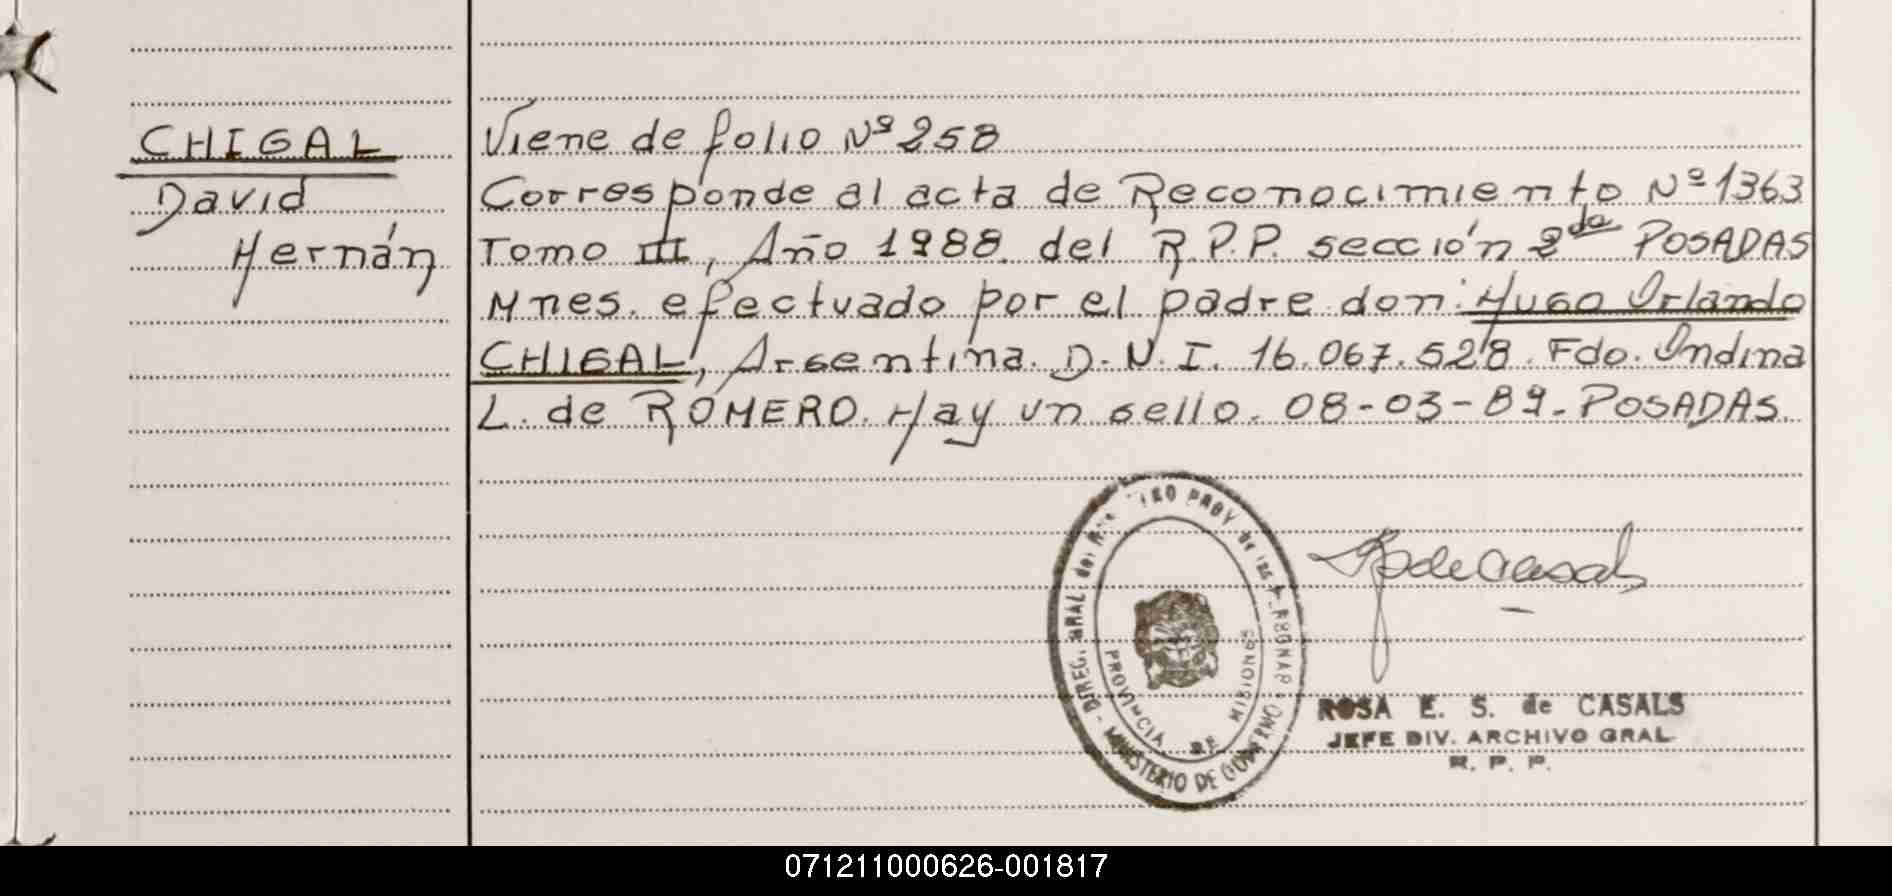 CHIGAL
David
Hernán
Viene de folio Nº 258
Corresponde al acta de Reconocimiento Nº 1363
Tomo III, Año 1988. del R.P.P. sección 2da POSADAS
Mnes. efectuado por el padre don: Hugo Orlando
CHIGAL, Argentina. D.N.I. 16.067.528. Fdo. Indina
L. de ROMERO. Hay un sello. 08-03-89. POSADAS.
PROVINCIA DE MISIONES
MINISTERIO DE GOBIERNO
R de Casals
ROSA E. S. de CASALS
JEFE DIV. ARCHIVO GRAL.
R. P. P.
071211000626-001817